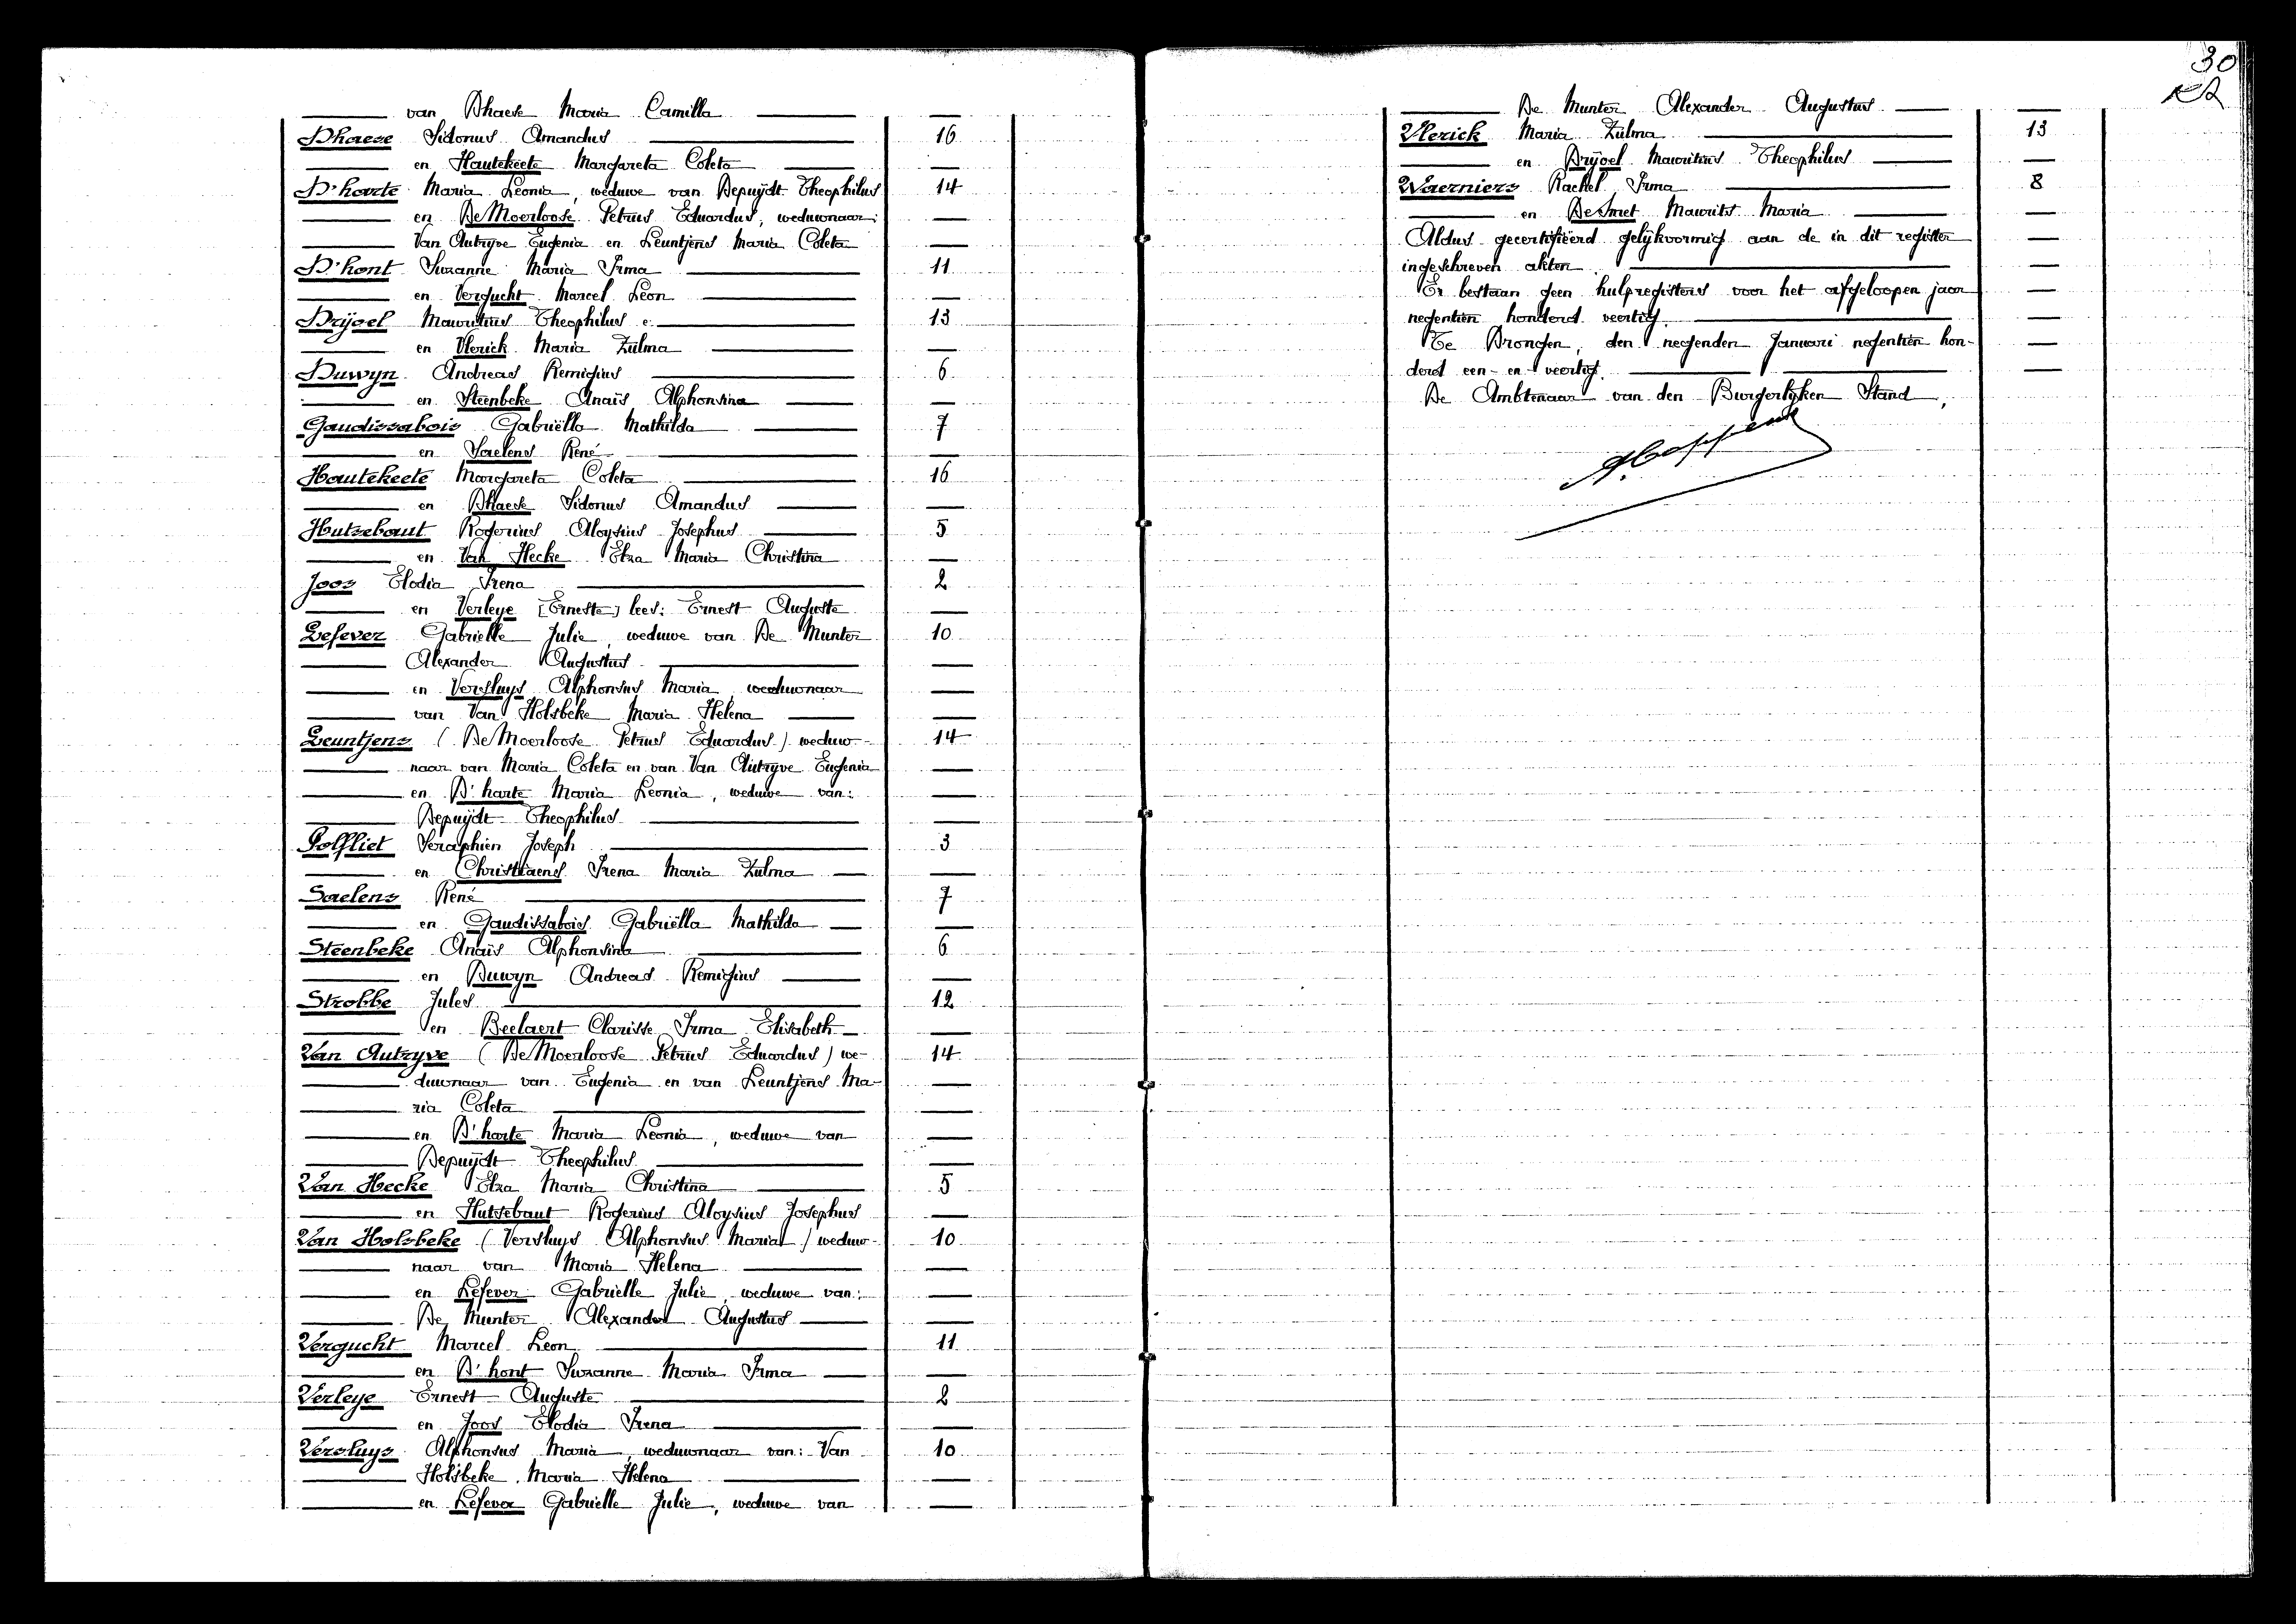 van Dhaese Maria Camilla
Dhaese Sidonus Amandus 16
en Hautekeete Margareta Coleta
D'harte Maria Leonia, weduwe van Depuÿdt Theophilus 14
en De Moerloose Petrus Eduardus, weduwnaar:
Van Autryve Eugenia en Leuntjens Maria Coleta
D'hont Suzanne Maria Irma 11
en Vergucht Marcel Leon
Drÿoel Mauritius Theophilus 13
en Vlerick Maria Zulma
Duwyn Andreas Remigius 6
en Steenbeke Anaïs Alphonsina
Gaudissabois Gabriëlla Mathilda 7
en Saelens René
Hautekeete Margareta Coleta 16
en Dhaese Sidonus Amandus
Hutsebaut Rogerius Aloysius Josephus 5
en Van Hecke Elza Maria Christina
Joos Elodia Irena 2
en Verleye [Erneste] lees: Ernest Auguste
Lefever Gabrielle Julie, weduwe van De Munter 10
Alexander Augustus
en Versluys Alphonsus Maria, weduwnaar
van Van Holsbeke Maria Helena
Leuntjens (De Moerloose Petrus Eduardus) weduw- 14
naar van Maria Coleta en van Van Autryve Eugenia
en D'harte Maria Leonia, weduwe van:
Depuÿdt Theophilus
Polfliet Seraphien Joseph 3
en Christiaens Irena Maria Zulma
Saelens René 7
en Gaudissabois Gabriëlla Mathilda
Steenbeke Anaïs Alphonsina 6
en Duwyn Andreas Remigius
Strobbe Jules 12
en Beelaert Clarisse Irma Elisabeth
Van Autryve (De Moerloose Petrus Eduardus) we- 14
duwnaar van Eugenia en van Leuntjens Ma-
ria Coleta
en D'harte Maria Leonia, weduwe van
Depuÿdt Theophilus
Van Hecke Elza Maria Christina 5
en Hutsebaut Rogerius Aloysius Josephus
Van Holsbeke (Versluys Alphonsus Maria) weduw- 10
naar van Maria Helena
en Lefever Gabrielle Julie, weduwe van:
De Munter Alexander Augustus
Vergucht Marcel Leon 11
en D'hont Suzanne Maria Irma
Verleye Ernest Auguste 2
en Joos Elodia Irena
Versluys Alphonsus Maria, weduwnaar van: Van 10
Holsbeke Maria Helena
en Lefever Gabrielle Julie, weduwe van
30
De Munter Alexander Augustus
Vlerick Maria Zulma 13
en Drÿoel Mauritius Theophilus
Waerniers Rachel Irma 8
en De Smet Maurits Maria
Aldus gecertifieerd gelykvormig aan de in dit register
ingeschreven akten
Er bestaan geen hulpregisters voor het afgeloopen jaar
negentien honderd veertig.
Te Drongen, den negenden Januari negentien hon-
derd een-en-veertig.
De Ambtenaar van den Burgerlyken Stand,